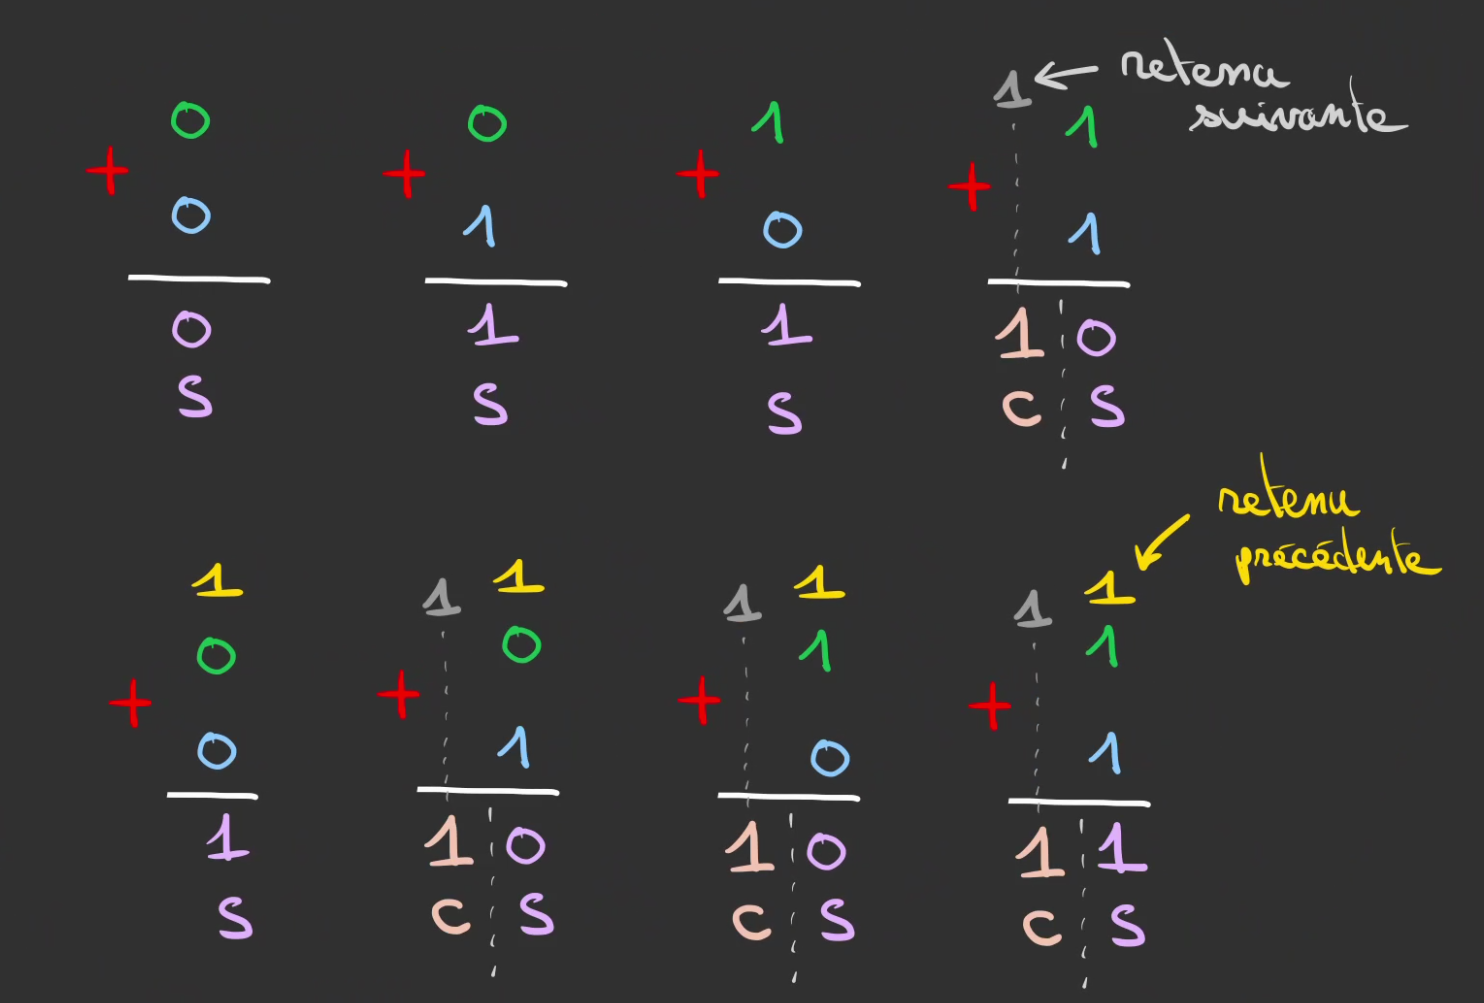 1 ← retenu
suivante
0 0 1 1
+ + + +
0 1 0 1
0 1 1 1 0
S S S C S
retenu
précédente
1 1 1 1 1 1 1
0 0 1 1
+ + + +
0 1 0 1
1 1 0 1 0 1 1
S C S C S C S